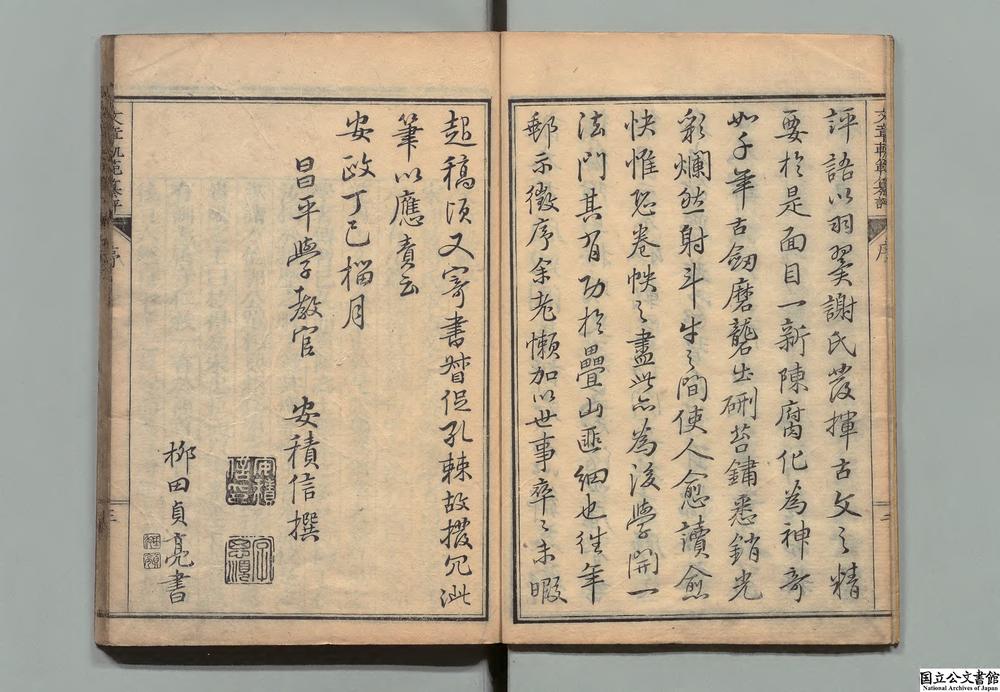 文章軌範纂評
序
三
評語以羽翼謝氏發揮古文之精
要於是面目一新陳腐化為神奇
如千年古劔磨礲出硎苔鏽悉銷光
彩爛然射斗牛之間使人愈讀愈
快惟恐卷帙之盡此亦為後學開一
法門其有功於疊山匪細也往年
郵示徵序余老懶加以世事卒〻未暇
起稿頃又寄書督促孔棘故攬凢泚
筆以應責云
安政丁巳橊月
昌平學教官 安積信撰
柳田貞亮書
文章軌範纂評
序
三
安積信印
国立公文書館
National Archives of Japan